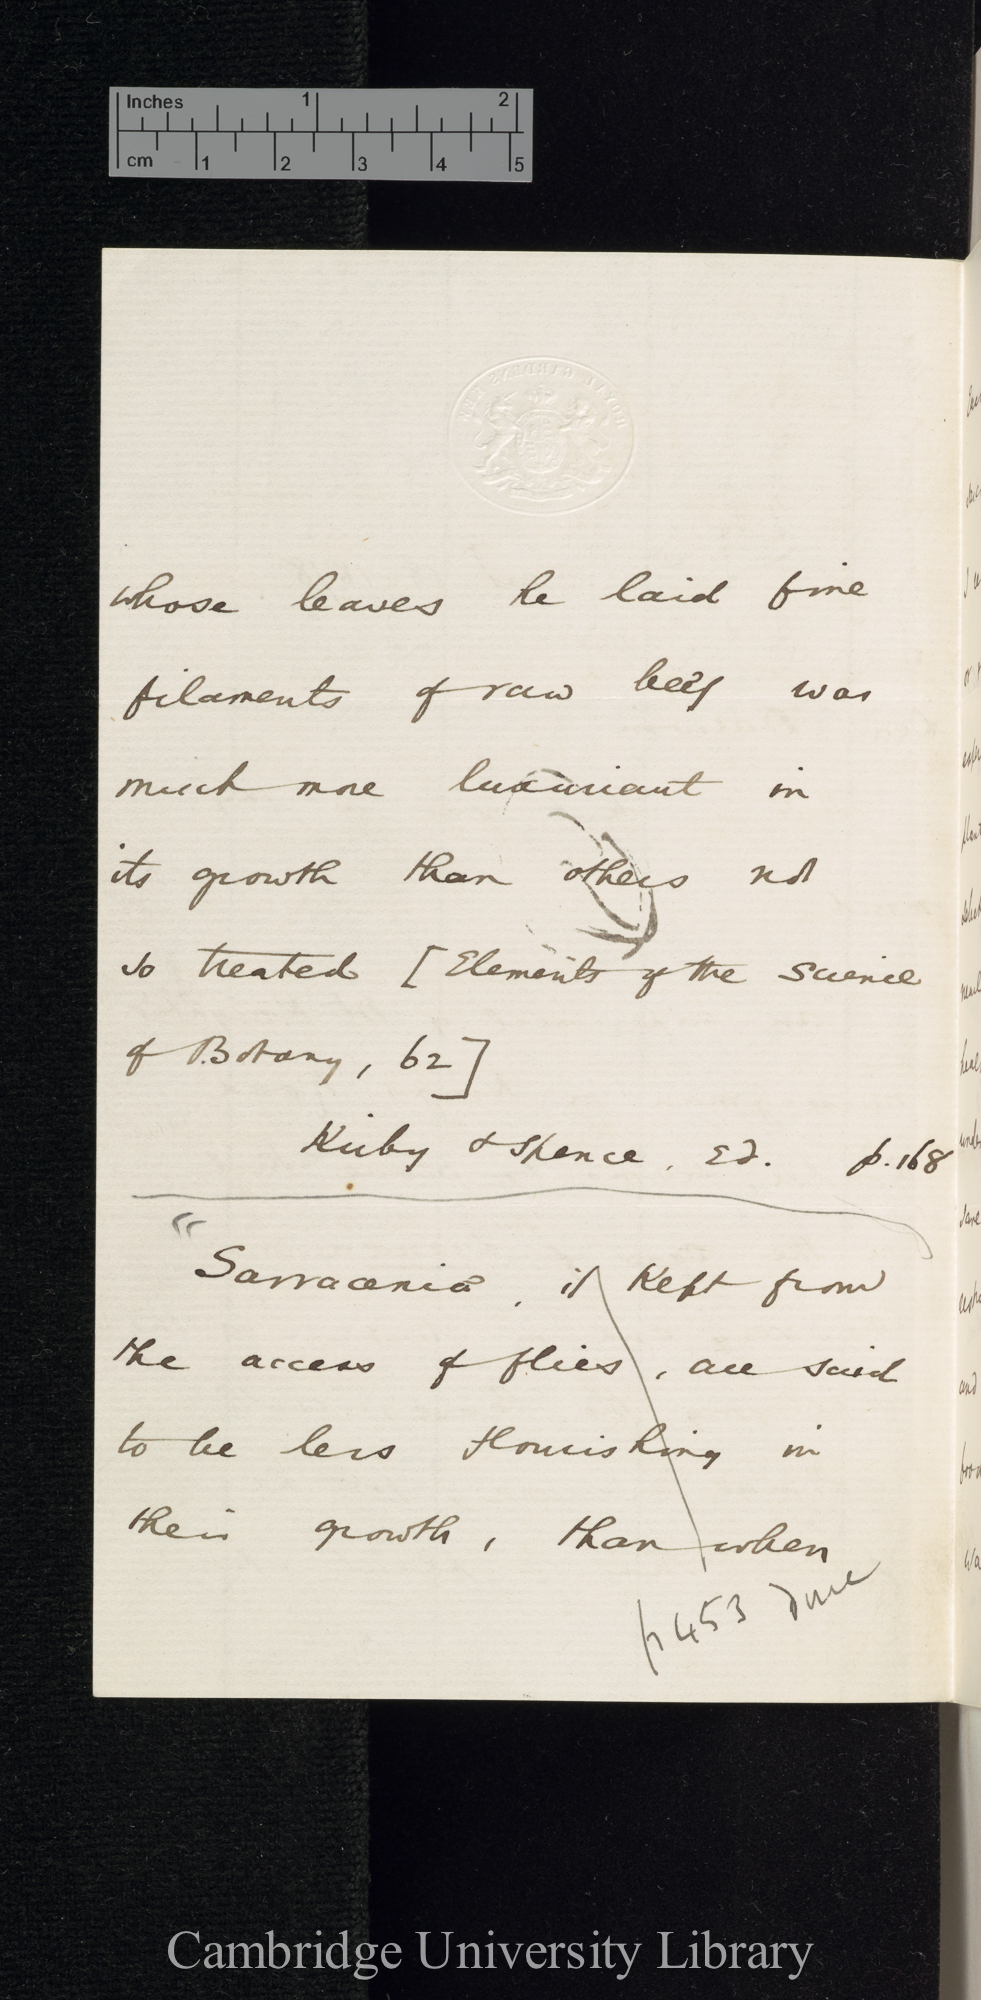 Inches 1 2
cm 1 2 3 4 5
ROYAL GARDENS KEW
whose leaves he laid fine
filaments of raw beef was
much more luxuriant in
its growth than others not
so treated [Elements of the Science
of Botany, 62]
Kirby & Spence. Ed. p. 168
"Sarracenia, if kept from
the access of flies, are said
to be less flourishing in
their growth, than when
p 453 Done
Cambridge University Library